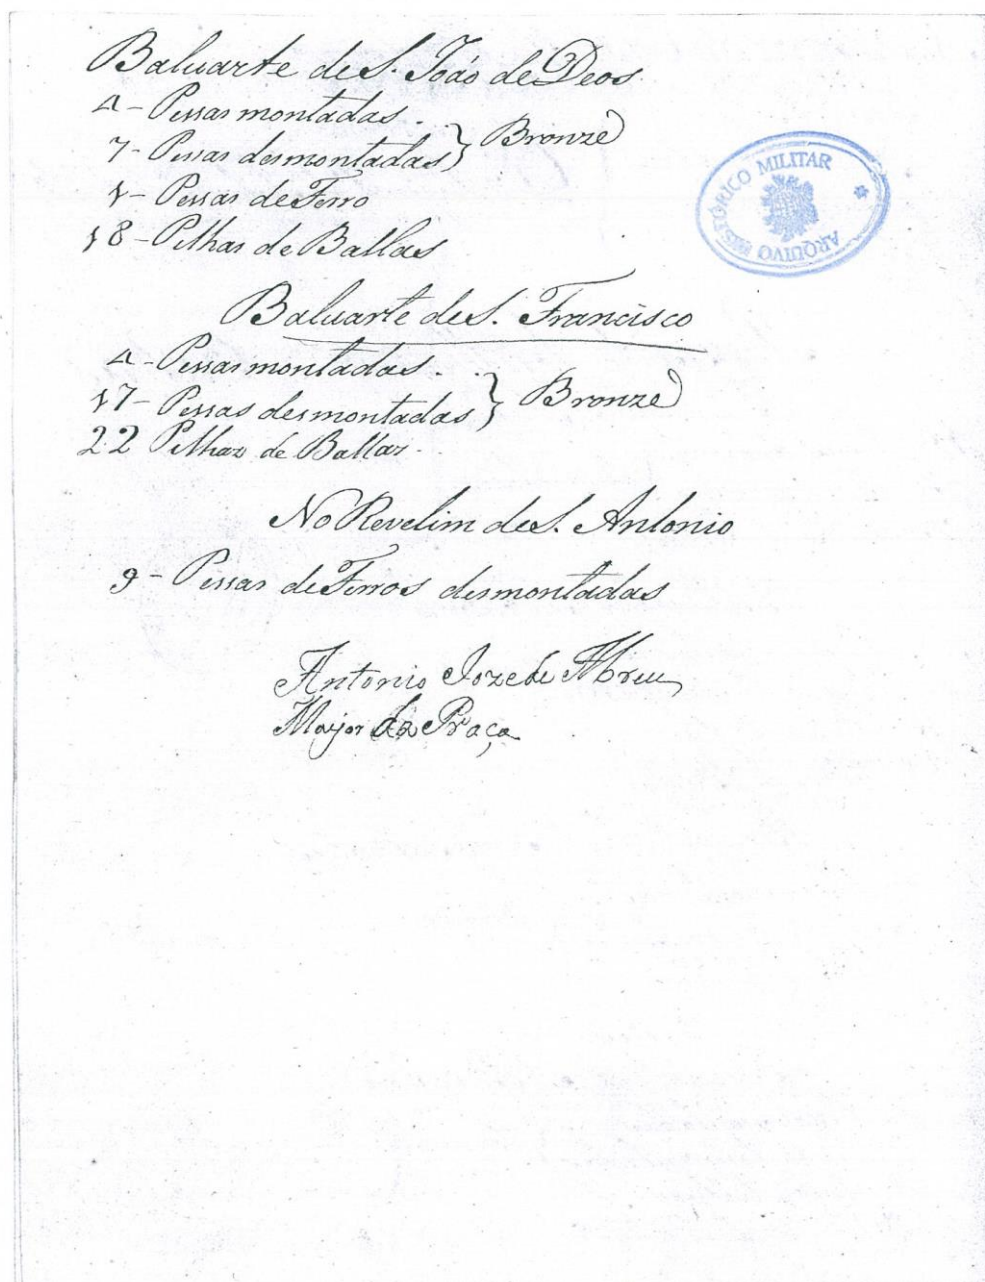 Baluarte de S. João de Deos
4 - Pessas montadas.
7 - Pessas desmontadas } Bronze
1 - Pessas de Ferro
18 - Pilhas de Ballas
Baluarte de S. Francisco
4 - Pessas montadas.
17 - Pessas desmontadas } Bronze
22 Pilhas de Ballas.
No Revelim de S. Antonio
9 - Pessas de Ferros desmontadas
Antonio Joze de Abreu
Major da Praça
ARQUIVO HISTÓRICO MILITAR